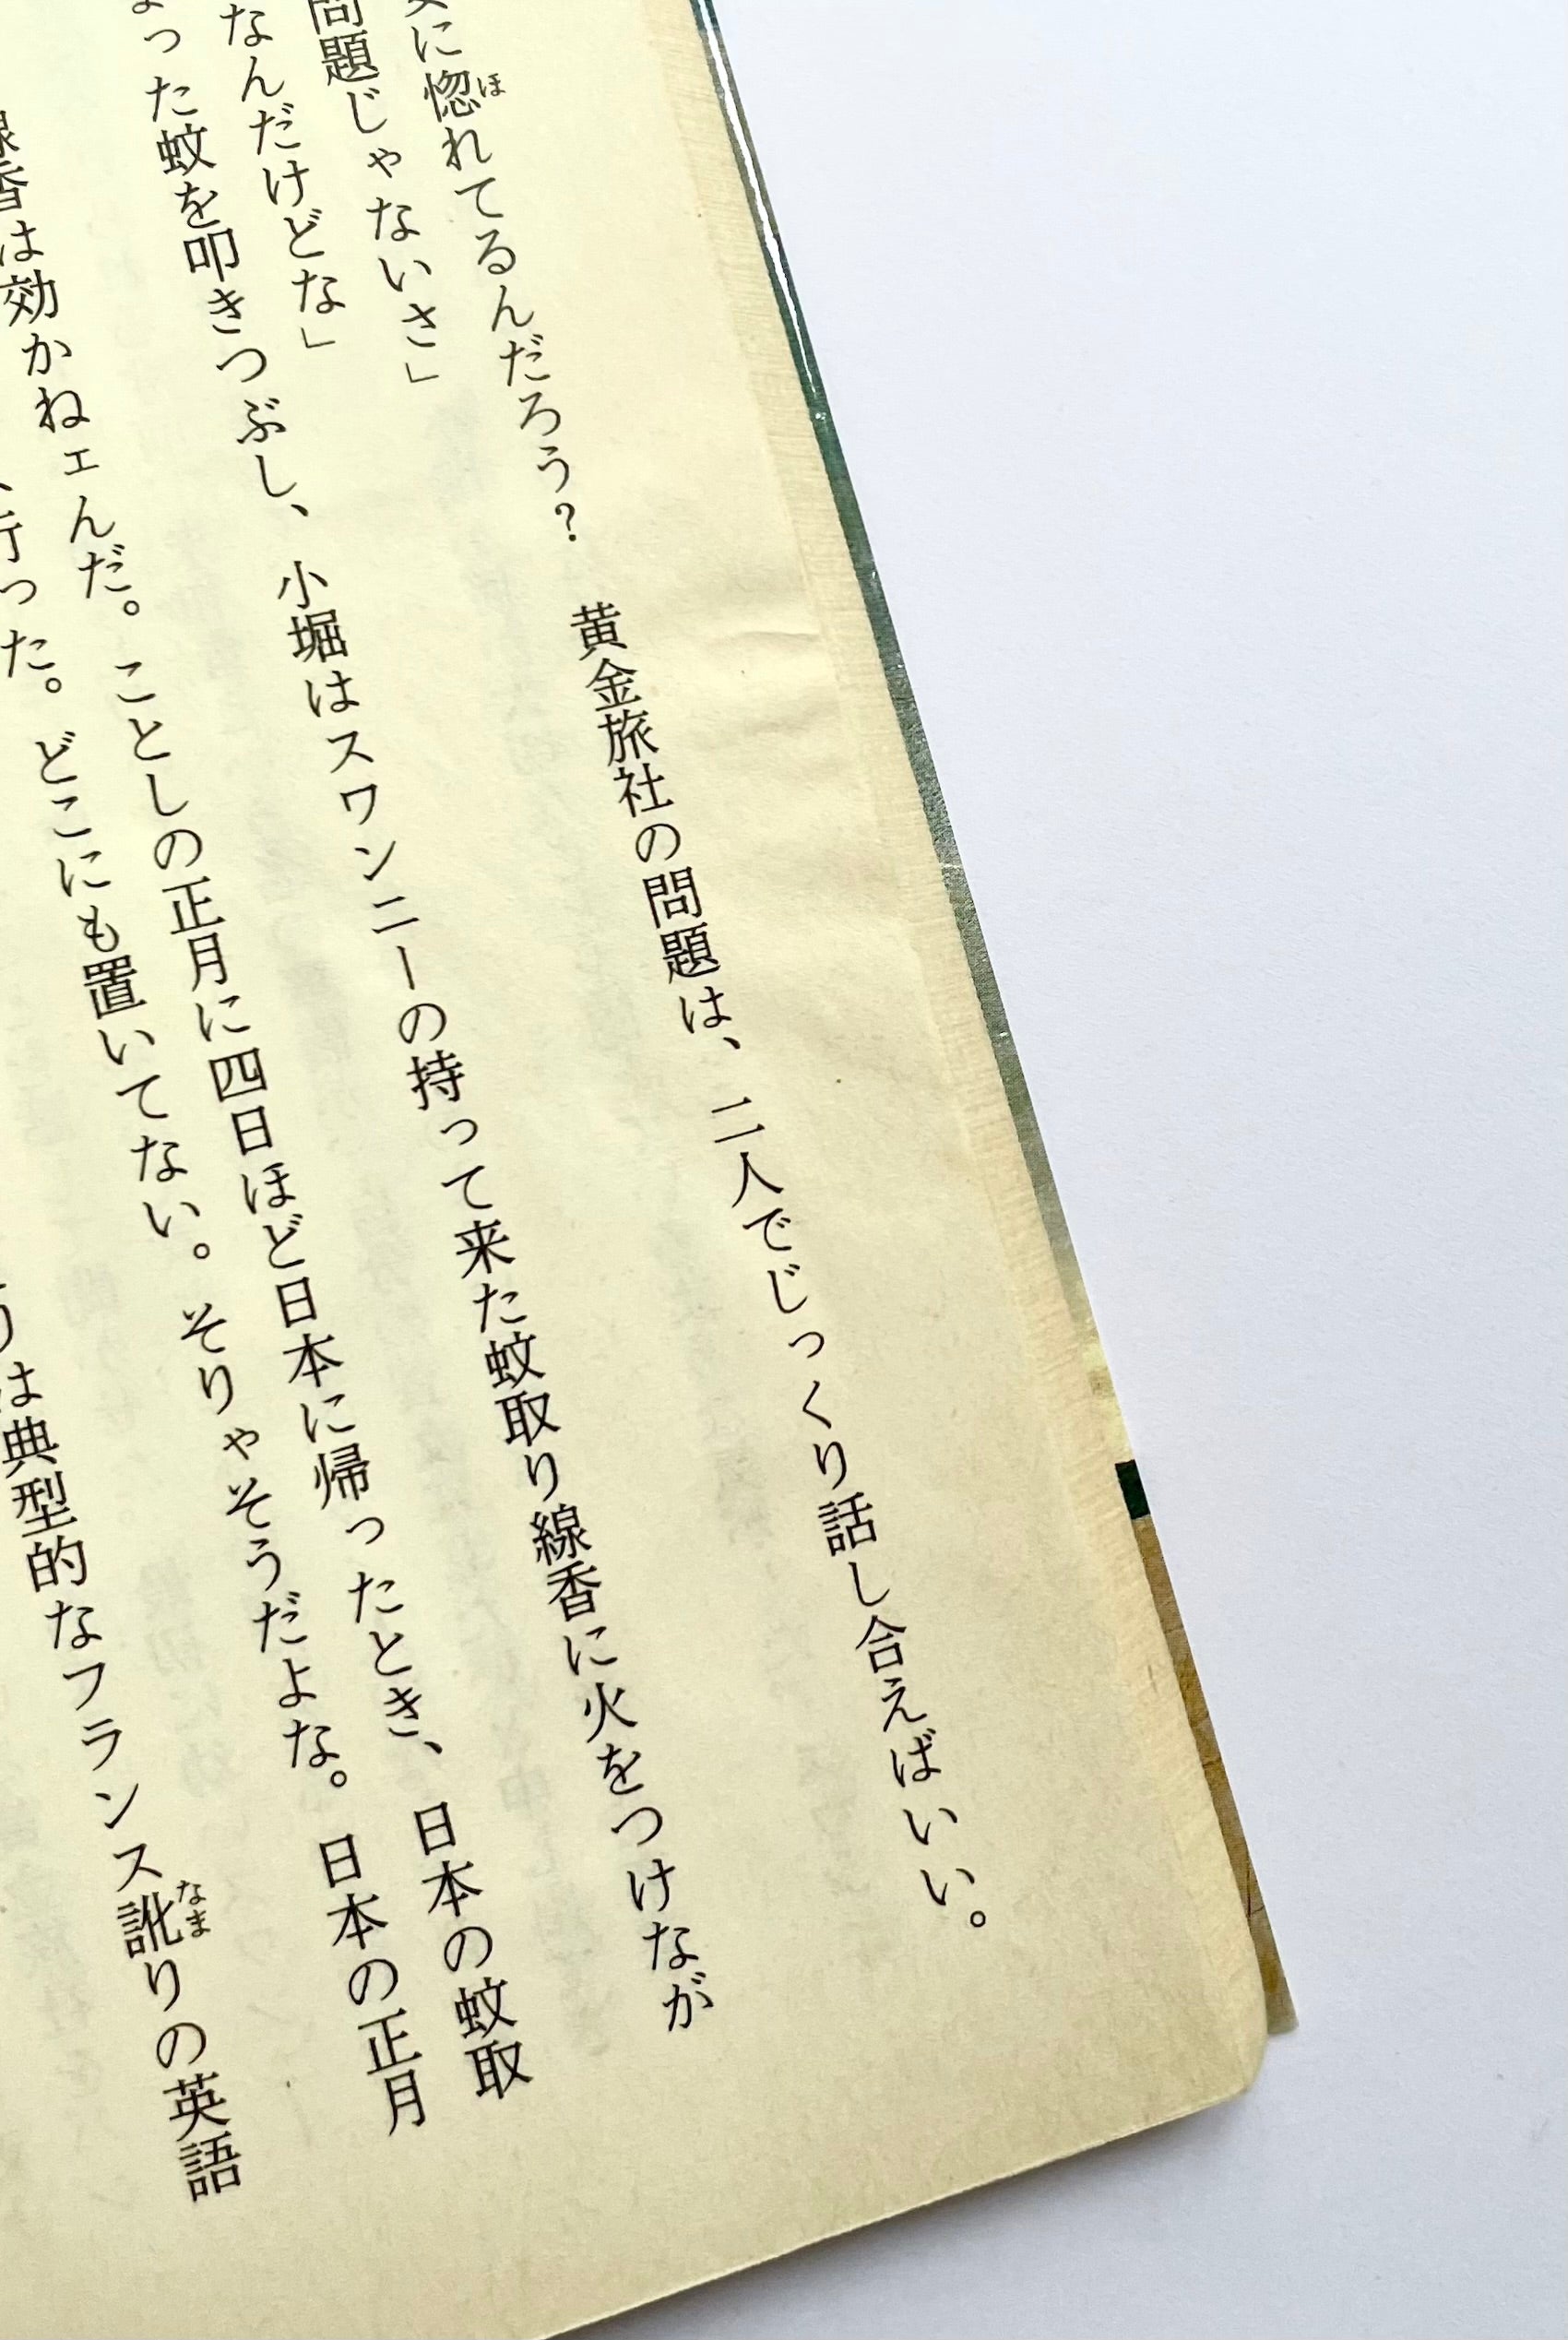 に惚れてるんだろう？　黄金旅社の問題は、二人でじっくり話し合えばいい。
ほ
問題じゃないさ」
なんだけどな」
った蚊を叩きつぶし、小堀はスワンニーの持って来た蚊取り線香に火をつけなが
線香は効かねェんだ。ことしの正月に四日ほど日本に帰ったとき、日本の蚊取
行った。どこにも置いてない。そりゃそうだよな。日本の正月
は典型的なフランス訛りの英語
なま